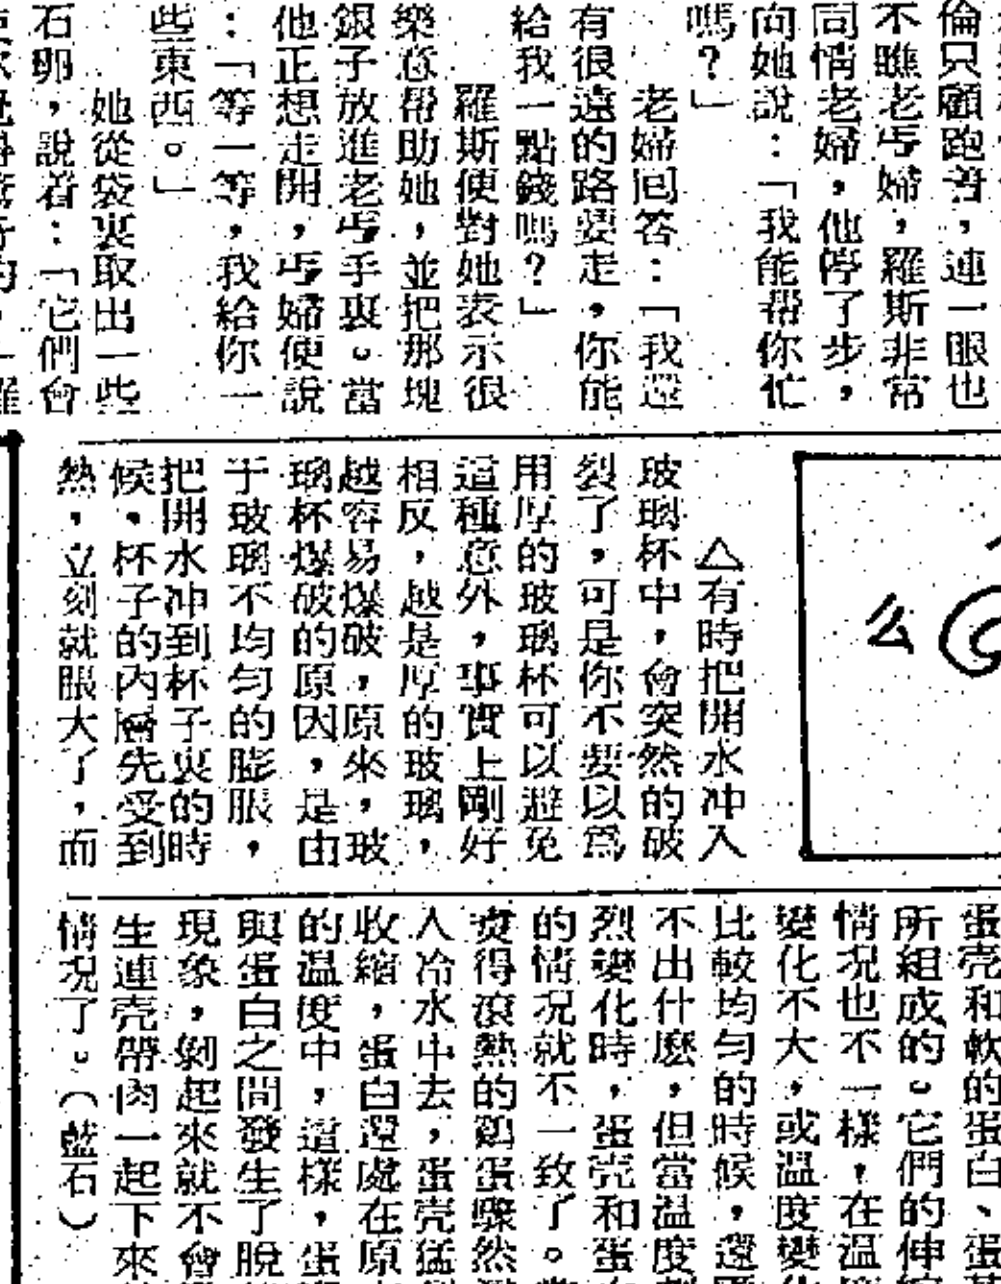 倫只顧跑着，連一眼也
不瞧老丐婦，羅斯非常
同情老婦，他停了步，
向她說：「我能帮你忙
嗎？」
老婦囘答：「我還
有很遠的路要走，你能
給我一點錢嗎？」
羅斯便對她表示很
樂意帮助她，並把那塊
銀子放進老丐手裏。當
他正想走開，丐婦便說
：「等一等，我給你一
些東西。」
她從袋裏取出一些
石卵，說着：「它們會
么
△有時把開水冲入
玻璃杯中，會突然的破
裂了，可是你不要以爲
用厚的玻璃杯可以避免
這種意外，事實上剛好
相反，越是厚的玻璃，
越容易爆破，原來，玻
璃杯爆破的原因，是由
于玻璃不均勻的膨脹，
把開水冲到杯子裏的時
候，杯子的內層先受到
熱，立刻就脹大了，而
蛋壳和軟的蛋白、蛋
所組成的。它們的伸
情况也不一樣，在温
變化不大，或温度變
比較均勻的時候，還
不出什麽，但當温度
烈變化時，蛋壳和蛋
的情况就不一致了。
煑得滾熱的鷄蛋驟然
入冷水中去，蛋壳猛
收縮，蛋白還處在原
的温度中，這樣，蛋
與蛋白之間發生了脫
現象，剝起來就不會
生連壳帶肉一起下來
情况了。（藍石）